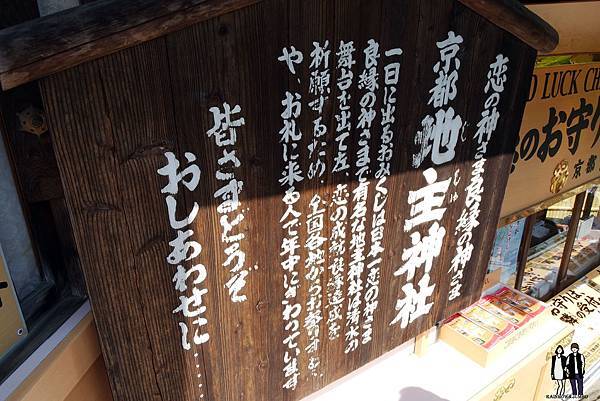 恋の神さま良縁の神さま
京都地主神社
じしゅ
一日に出るおみくじは日本一恋の神さま
良縁の神さまで有名な地主神社は清水の
舞台を出て左、恋の成就
達成を
祈願するため、全国各地から
や、お礼に来る人で年中にぎわっています
皆さまどうぞ
おしあわせに‥‥
LUCK
のお守り
京都